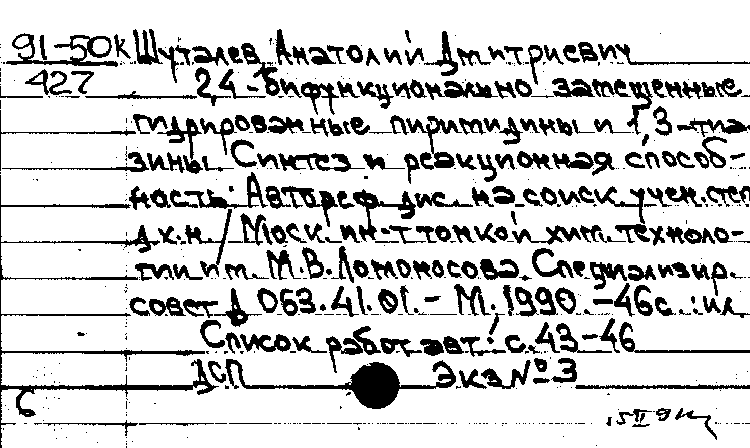 91-50к Шуталев Анатолий Дмитриевич
427 2,4-бифункционально замещенные
гидрированные пиримидины и 1,3-тиа-
зины. Синтез и реакционная способ-
ность: Автореф. дис. на соиск. учен. степ
д.х.н. / Моск. ин-т тонкой хим. техноло-
гии им. М.В.Ломоносова. Специализир.
совет Д 063.41.01. - М. 1990. - 46с. : ил.
Список работ авт.: с.43-46
ДСП Экз №3
6
15 II 91